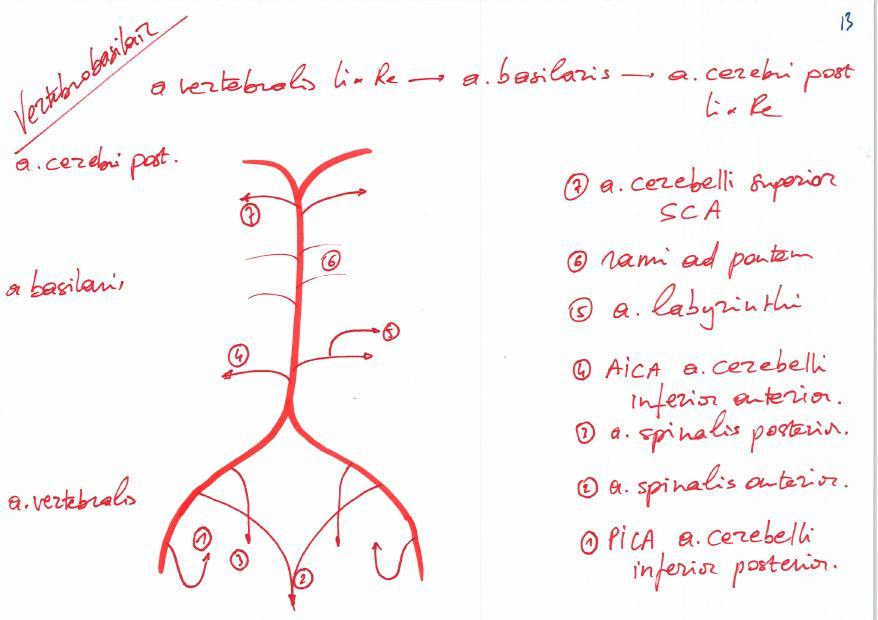 13
Vertebrobasilair
a vertebralis li - Re → a. basilaris → a. cerebri post
li - Re
a. cerebri post.
a basilaris
a. vertebralis
7
6
5
4
1
3
2
7 a. cerebelli superior
SCA
6 rami ad pontem
5 a. labyrinthi
4 AiCA a. cerebelli
inferior anterior.
3 a. spinalis posterior.
2 a. spinalis anterior.
1 PiCA a. cerebelli
inferior posterior.